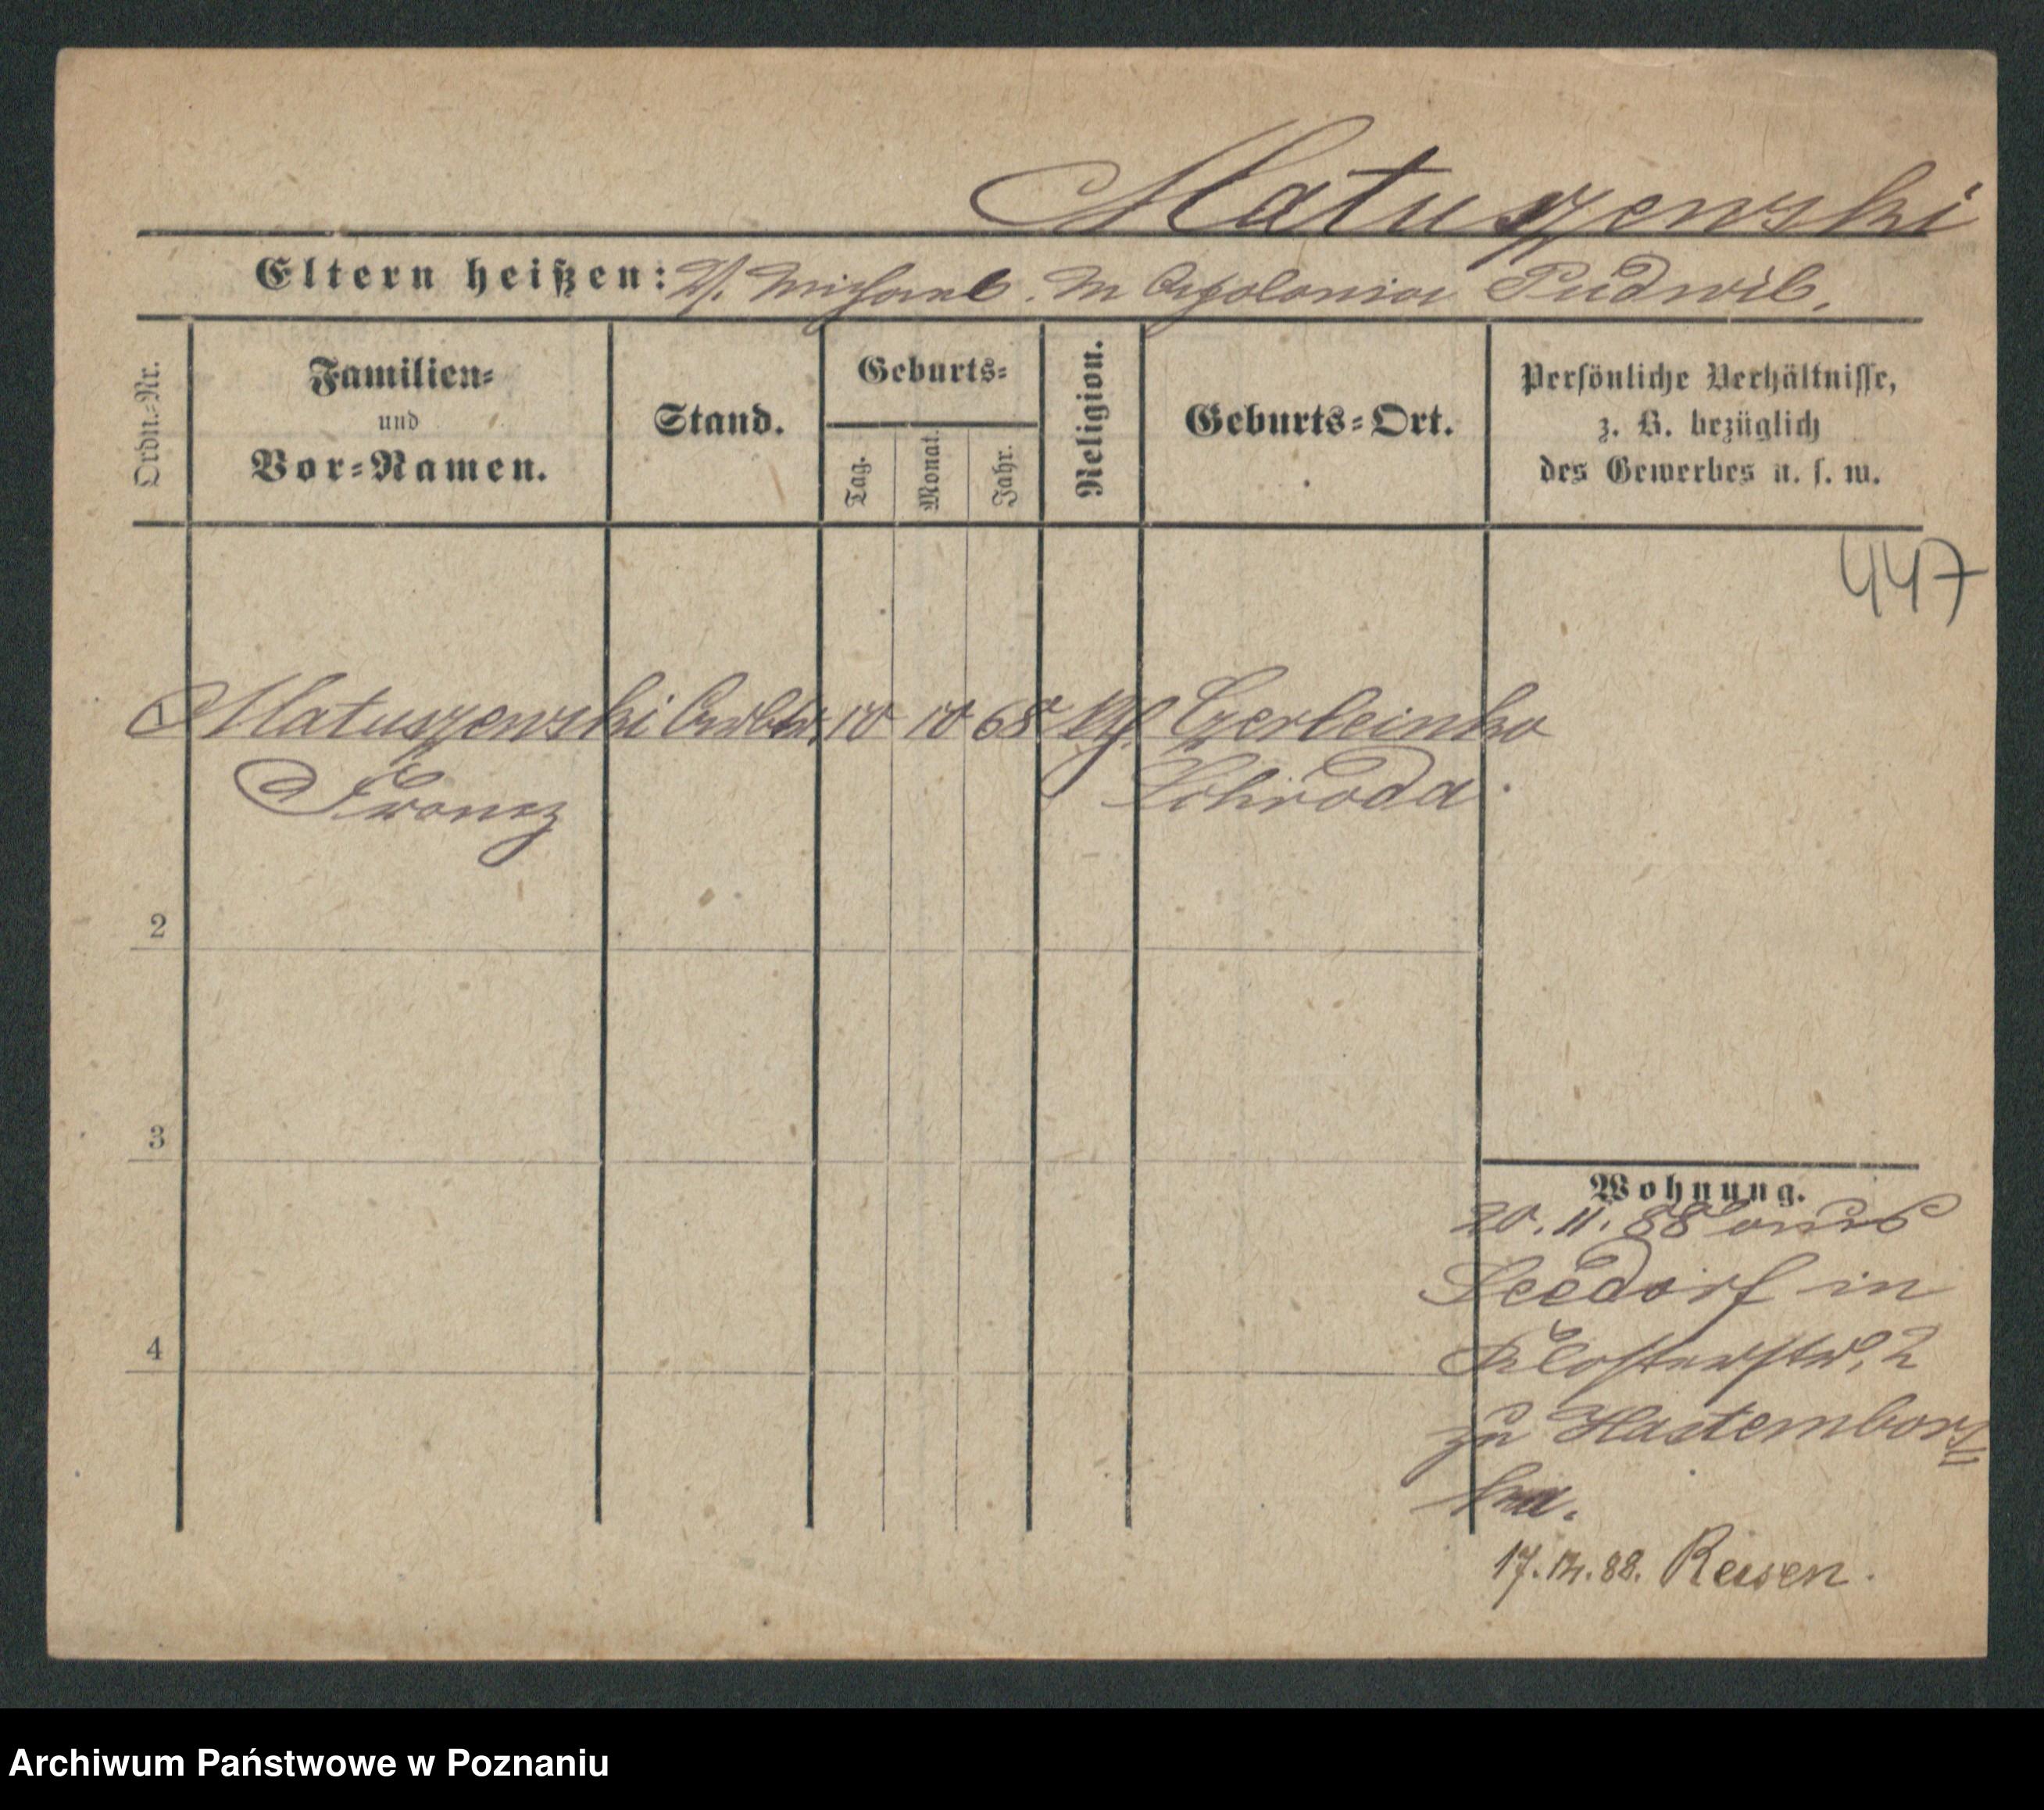 Matuszewski
Eltern heißen: V. Michael. M Apolonia Pudwil.
Ordn.-Nr.
Familien-
und
Vor-Namen.
Stand.
Geburts-
Tag.
Monat.
Jahr.
Religion.
Geburts-Ort.
Persönliche Verhältnisse,
z. B. bezüglich
des Gewerbes u. s. w.
447
1 Matuszewski Arbtr. 10 10 68 Kth. Czerleinko
Franz Schroda.
2
3
4
Wohnung.
20. 11. 88 aus
Seedorf in
Klosterstr. 2
zu Hastembors=
ka.
17.12.88. Reisen.
Archiwum Państwowe w Poznaniu